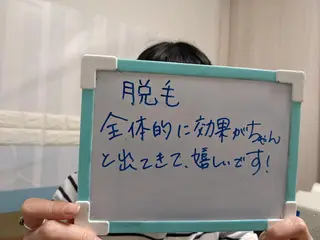 脱毛
全体的に効果がちゃん
と出てきて、嬉しいです!